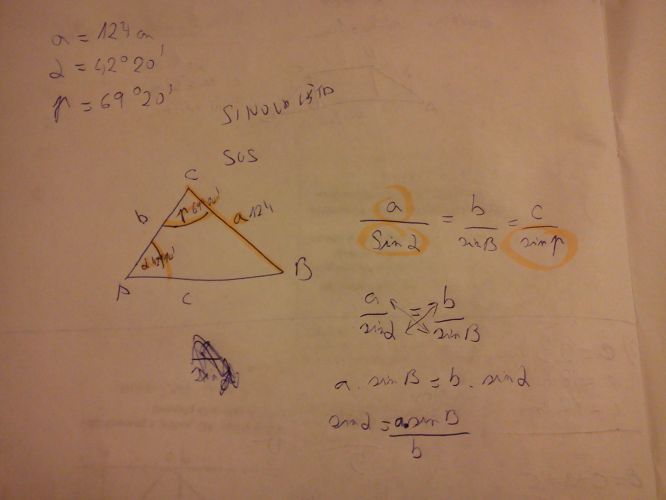 a = 124 cm
α = 42°20'
γ = 69°20'
SINOVÁ VĚTA
SUS
C
b
γ 69°20'
a 124
α 42°20'
A
c
B
a/sin α = b/sin B = c/sin γ
a/sin α = b/sin B
a . sin B = b . sin α
sin α = a . sin B / b